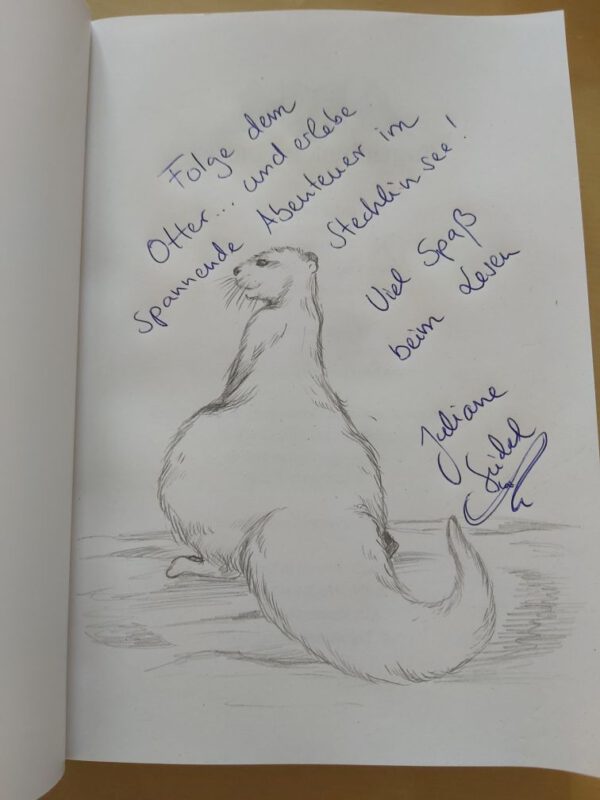 Folge dem
Otter... und erlebe
spannende Abenteuer im
Stechlinsee!
Viel Spaß
beim Lesen
Juliane
Seidel